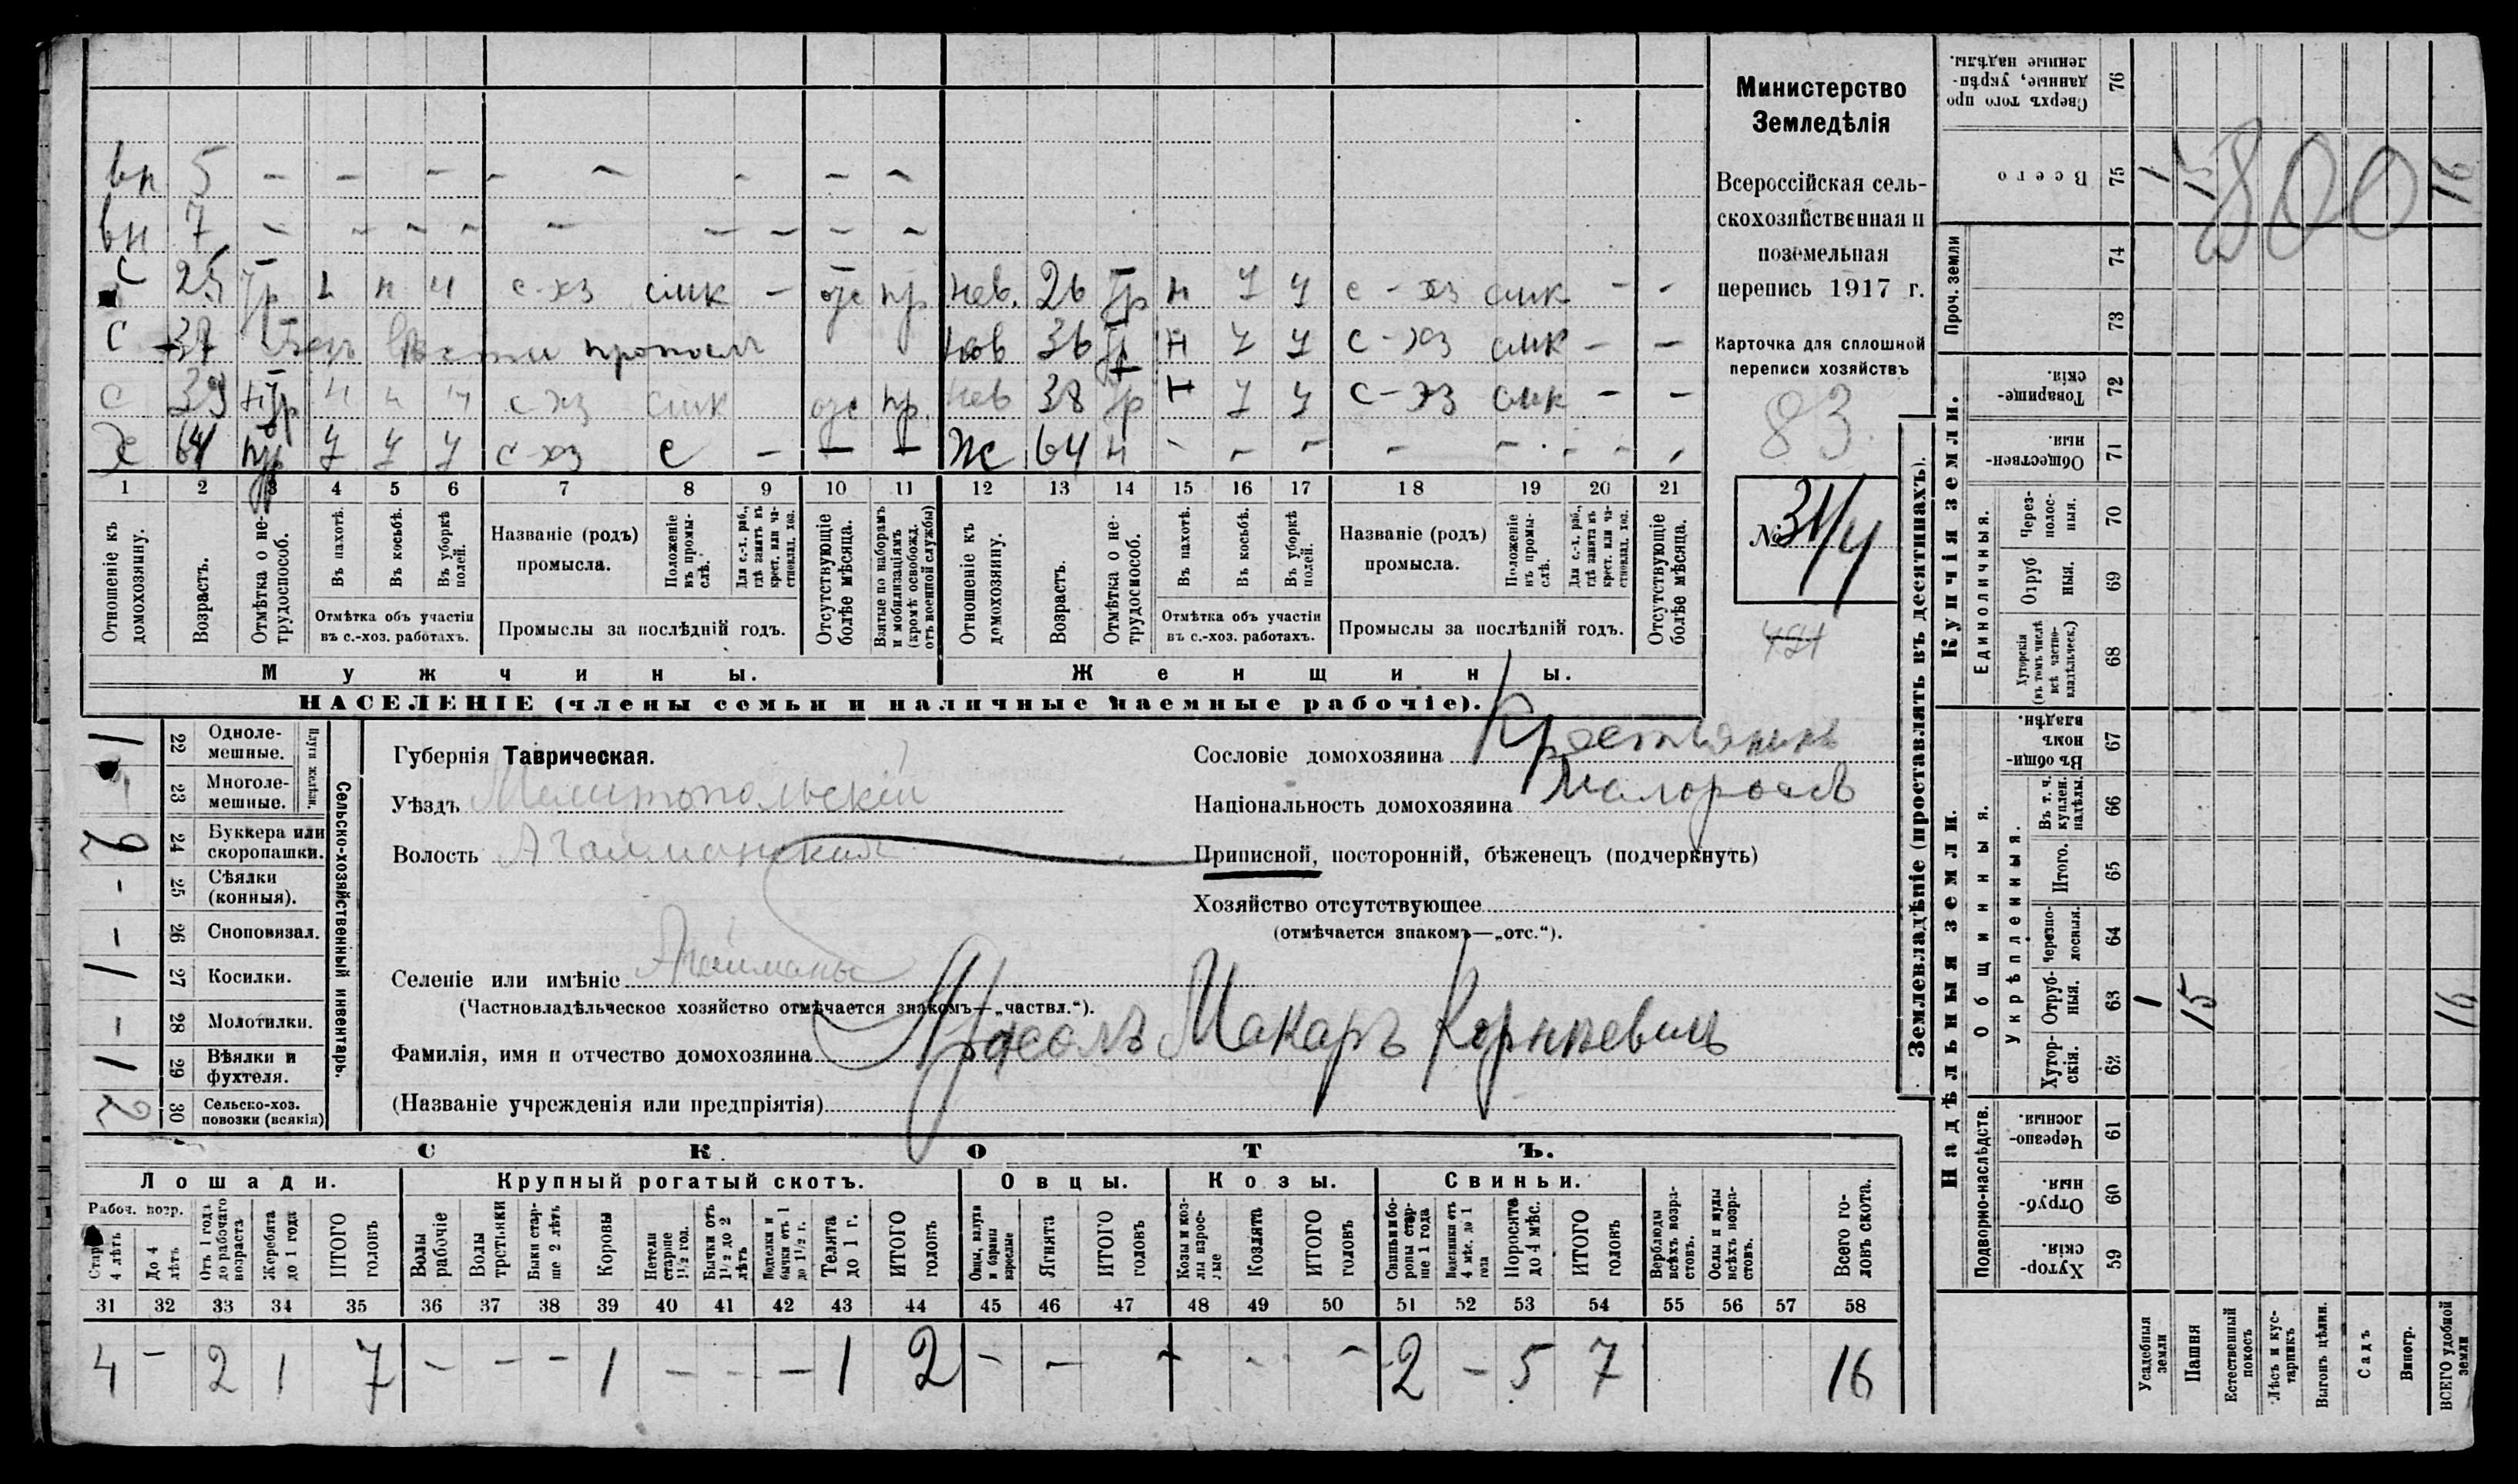 вн 5 – – – – – – – –
вн 7 – – – – – – – –
с 25 гр н н с-хз смк – пр нев. 26 гр н у у с-хз смк – –
с 37 безъ вести пропалъ нев 36 гр н у у с-хз смк – –
с 39 гр н н н с-хз смк пр. нев 38 гр н у у с-хз смк – –
х 64 пр у у у с-хз с – – – ж 64 н – – – – – – –
1 2 3 4 5 6 7 8 9 10 11 12 13 14 15 16 17 18 19 20 21
Отношеніе къ домохозяину.
Возрастъ.
Отмѣтка о не-трудоспособ.
Въ пахотѣ.
Въ косьбѣ.
Въ уборкѣ полей.
Отмѣтка объ участіи въ с.-хоз. работахъ.
Названіе (родъ) промысла.
Положеніе въ промы-слѣ.
Для с.-х. раб., гдѣ занятъ въ крест. или ча-стновлад. хоз.
Промыслы за послѣдній годъ.
Отсутствующіе болѣе мѣсяца.
Взятые по наборамъ и мобилизаціямъ (кромѣ освобожд. отъ военной службы)
Отношеніе къ домохозяину.
Возрастъ.
Отмѣтка о не-трудоспособ.
Въ пахотѣ.
Въ косьбѣ.
Въ уборкѣ полей.
Отмѣтка объ участіи въ с.-хоз. работахъ.
Названіе (родъ) промысла.
Положеніе въ промы-слѣ.
Для с.-х. раб., гдѣ занята въ крест. или ча-стновлад. хоз.
Промыслы за послѣдній годъ.
Отсутствующіе болѣе мѣсяца.
Мужчины. Женщины.
НАСЕЛЕНІЕ (члены семьи и наличные наемные рабочіе).
Министерство
Земледѣлія
Всероссійская сель-
скохозяйственная и
поземельная
перепись 1917 г.
Карточка для сплошной
переписи хозяйствъ
83
№ 31/4
421
1 22 Одноле-мешные.
23 Многоле-мешные.
Плуги желѣзн.
2 24 Буккера или скоропашки.
– 25 Сѣялки (конныя).
– 26 Сноповязал.
1 27 Косилки.
– 28 Молотилки.
1 29 Вѣялки и фухтеля.
2 30 Сельско-хоз. повозки (всякія)
Сельско-хозяйственный инвентарь.
Губернія Таврическая.
Уѣздъ Мелитопольскій
Волость Агайманская
Селеніе или имѣніе Агайманы
(Частновладѣльческое хозяйство отмѣчается знакомъ—„частвл.“).
Фамилія, имя и отчество домохозяина Макаръ Корнѣевичъ
(Названіе учрежденія или предпріятія)
Сословіе домохозяина Крестьянинъ
Національность домохозяина Малороссъ
Приписной, посторонній, бѣженецъ (подчеркнуть)
Хозяйство отсутствующее
(отмѣчается знакомъ—„отс.“).
СКОТЪ.
Лошади. Крупный рогатый скотъ. Овцы. Козы. Свиньи.
Рабоч. возр.
Старше 4 лѣтъ
До 4 лѣтъ
Отъ 1 года до рабочаго возраста
Жеребята до 1 года
ИТОГО головъ
Волы рабочіе
Волы третьяки
Быки стар-ше 2 лѣтъ
Коровы
Нетели старше 1½ год.
Бычки отъ 1½ до 2 лѣтъ
Подтелки и бычки отъ 1 до 1½ г.
Телята до 1 г.
ИТОГО головъ
Овцы, валухи и бараны взрослые
Ягнята
ИТОГО головъ
Козы и коз-лы взрос-лые
Козлята
ИТОГО головъ
Свиньи и бо-ровы стар-ше 1 года
Подсвинки отъ 4 мѣс. до 1 года
Поросята до 4 мѣс.
ИТОГО головъ
Верблюды всѣхъ возра-стовъ.
Ослы и мулы всѣхъ возра-стовъ.
Всего го-ловъ скота.
31 32 33 34 35 36 37 38 39 40 41 42 43 44 45 46 47 48 49 50 51 52 53 54 55 56 57 58
4 – 2 1 7 – – – 1 – – – 1 2 – – – – – 2 – 5 7 16
Землевладѣніе (проставлять въ десятинахъ).
Надѣльныя земли. Купчія земли.
Проч. земли
Подворно-наслѣдств.
Общинныя.
Укрѣпленныя.
Единоличныя.
Сверхъ того про данные, укрѣп-ленные надѣлы. 76
Всего 75 1 15 16
800
74
73
Товарище-скія. 72
Обществен-ныя. 71
Через-полос-ныя. 70
Отруб ныя. 69
Хуторскія (въ томъ числѣ всѣ частно-владѣльческ.) 68
Въ общин-номъ владѣн. 67
Въ т. ч. куплен. надѣлы. 66
Итого. 65
Черезпо-лосныя. 64
Отруб-ныя. 63 1 15 16
Хутор-скія. 62
Черезпо-лосныя. 61
Отруб-ныя. 60
Хутор-скія. 59
Усадебныя земли
Пашня
Естественный покосъ
Лѣсъ и кус-тарникъ
Выгонъ цѣлин.
Садъ
Виногр.
ВСЕГО удобной земли